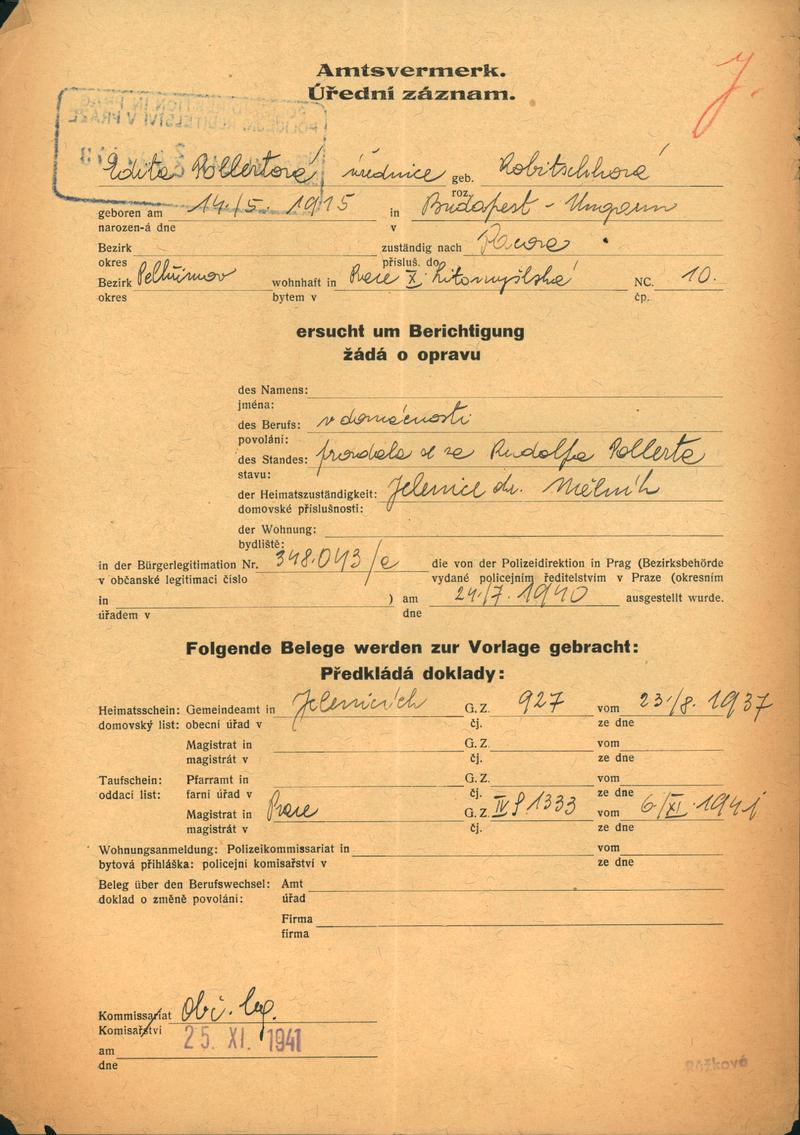 Amtsvermerk.
Úřední záznam.
J.
Edita Pollertová úřednice geb. Robitschková
roz.
geboren am 14./5. 1915 in Budapest - Ungarn
narozen-á dne v
Bezirk zuständig nach Pacova
okres přísluš. do
Bezirk Pelhřimov wohnhaft in Praze X. Litomyšlská NC. 10.
okres bytem v čp.
ersucht um Berichtigung
žádá o opravu
des Namens:
jména:
des Berufs: v domácnosti
povolání:
des Standes: provdala se za Rudolfa Pollerta
stavu:
der Heimatszuständigkeit: Jelenice okr. Mělník
domovské příslušnosti:
der Wohnung:
bydliště:
in der Bürgerlegitimation Nr. 348.043/e die von der Polizeidirektion in Prag (Bezirksbehörde
v občanské legitimaci číslo vydané policejním ředitelstvím v Praze (okresním
in ) am 24./7. 1940 ausgestellt wurde.
úřadem v dne
Folgende Belege werden zur Vorlage gebracht:
Předkládá doklady:
Heimatsschein: Gemeindeamt in Jelenicích G. Z. 927 vom 23./8. 1937
domovský list: obecní úřad v čj. ze dne
Magistrat in G. Z. vom
magistrát v čj. ze dne
Taufschein: Pfarramt in G. Z. vom
oddací list: farní úřad v čj. ze dne
Magistrat in Praze G. Z. IV 1333 vom 6./XI. 1941
magistrát v čj. ze dne
Wohnungsanmeldung: Polizeikommissariat in vom
bytová přihláška: policejní komisařství v ze dne
Beleg über den Berufswechsel: Amt
doklad o změně povolání: úřad
Firma
firma
Kommissariat Obč. leg.
Komisařství
25. XI. 1941
am
dne
Růžková